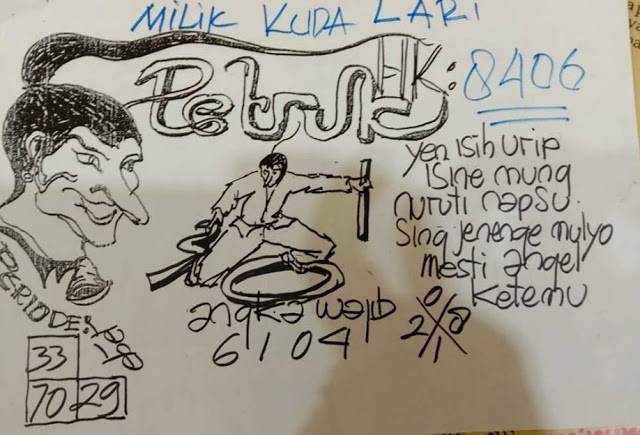 MILIK KUDA LARI
Petruk HK: 8406
yen isih urip
isine mung
nuruti napsu.
Sing jenenge mulyo
mesti angel
ketemu
PERIODE:
33
70 29
angka wajib
6 1 0 4
0 8
2 1